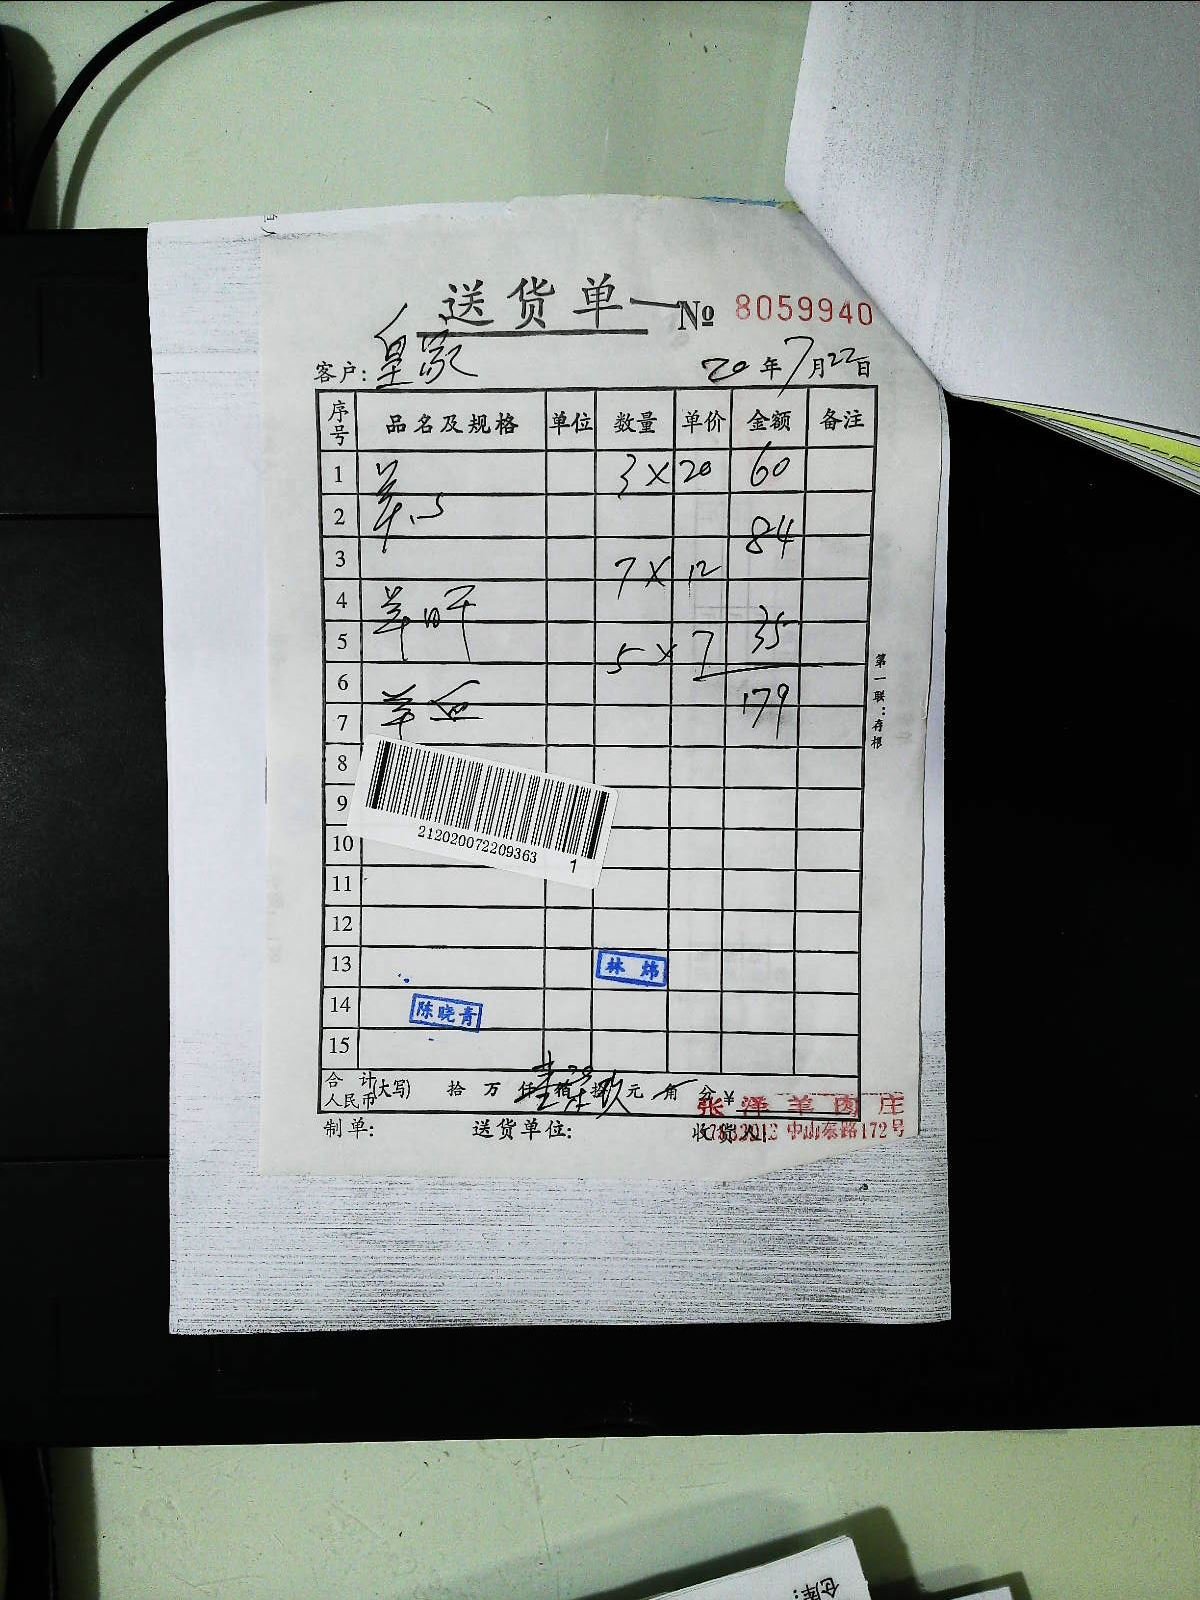 送货单 № 8059940
客户: 皇家 20年7月22日
序号 品名及规格 单位 数量 单价 金额 备注
1 羊心 3 × 20 60
2
3 7 × 12 84
4 羊肝
5 5 × 7 35
6 179
7 羊血
8
9
10
212020072209363 1
11
12
13 林炜
14 陈晓青
15
合计人民币(大写) 拾 万 仟 壹佰 柒拾 玖元 角 分 ¥
张洋羊肉庄
制单: 送货单位: 收货人:
中山东路172号
第一联:存根
仓库: